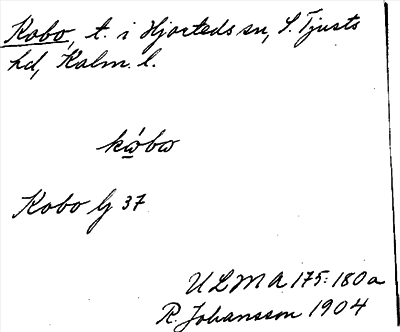 Kobo, t. i Hjorteds sn, S. Tjusts
hd, Kalm. l.
kώbω
Kobo lj 37
ULMA 175:180a
R. Johansson 1904